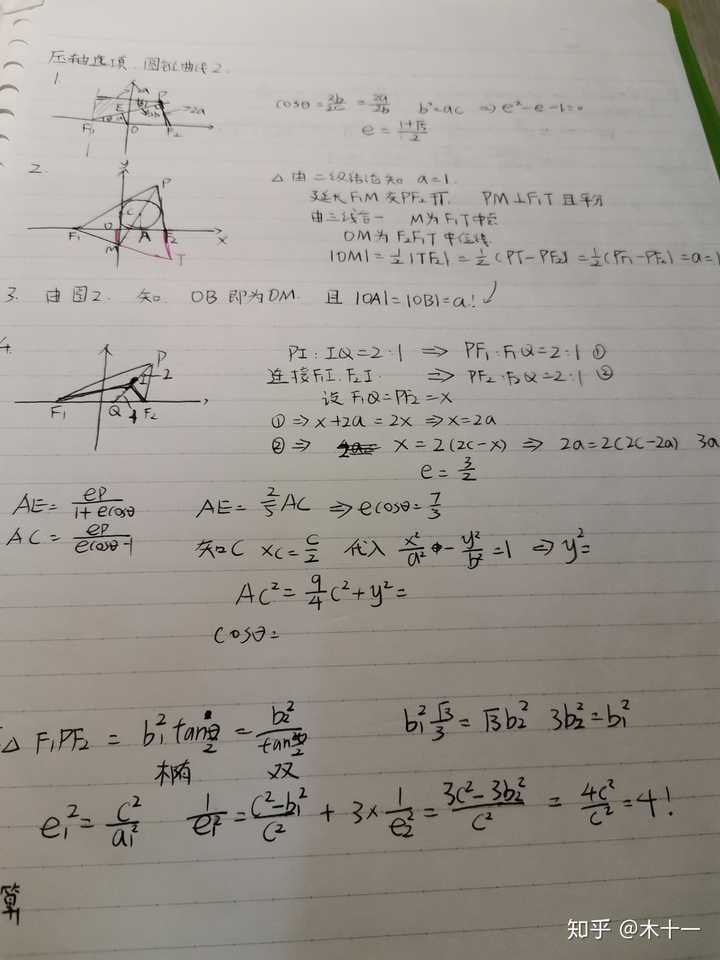 压轴选填 圆锥曲线2.
1.
cosθ = 2b/2c = 2a/2b b²=ac ⇒ e²-e-1=0
e = (1+√5)/2
2.
△ 由二级结论知 a=1.
延长F₁M交PF₂于T. PM⊥F₁T 且平分
由三线合一 M为F₁T中点
OM为F₂F₁T中位线
|OM| = 1/2|TF₂| = 1/2(PT-PF₂) = 1/2(PF₁-PF₂) = a = 1
3. 由图2. 知. OB即为OM. 且 |OA|=|OB|=a!
4.
PI : IQ = 2:1 ⇒ PF₁ : F₁Q = 2:1 ①
连接F₁I. F₂I. ⇒ PF₂ : F₂Q = 2:1 ②
设 F₁Q = PF₂ = x
① ⇒ x+2a = 2x ⇒ x = 2a
② ⇒ x = 2(2c-x) ⇒ 2a = 2(2c-2a) 3a
e = 3/2
AE = ep/(1+ecosθ) AE = 2/5 AC ⇒ ecosθ = 7/3
AC = ep/(ecosθ-1) 知C x_C = c/2 代入 x²/a² - y²/b² = 1 ⇒ y² =
AC² = 9/4 c² + y² =
cosθ =
△ F₁PF₂ = b₁² tan θ/2 = b₂²/tan θ/2 b₁² √3/3 = √3 b₂² 3b₂² = b₁²
椭 双
e₁² = c²/a₁² 1/e₁² = (c²-b₁²)/c² + 3×1/e₂² = (3c²-3b₂²)/c² = 4c²/c² = 4!
算
知乎 @木十一